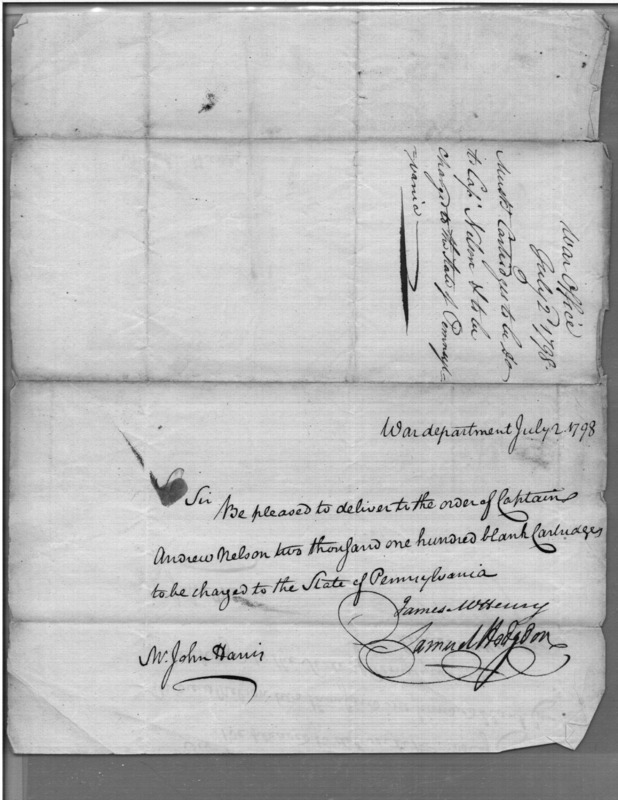 War Office
July 2d 1798.
Muskt Cartridges to be de
to Cap. Nelson & to be
charged to the State of Pennsyl-
vania
War department July 2. 1798
Sir
Be pleased to deliver to the order of Captain
Andrew Nelson two thousand one hundred blank Cartridges
to be charged to the State of Pennsylvania
James McHenry
Samuel Hodgdon
Mr. John Harris